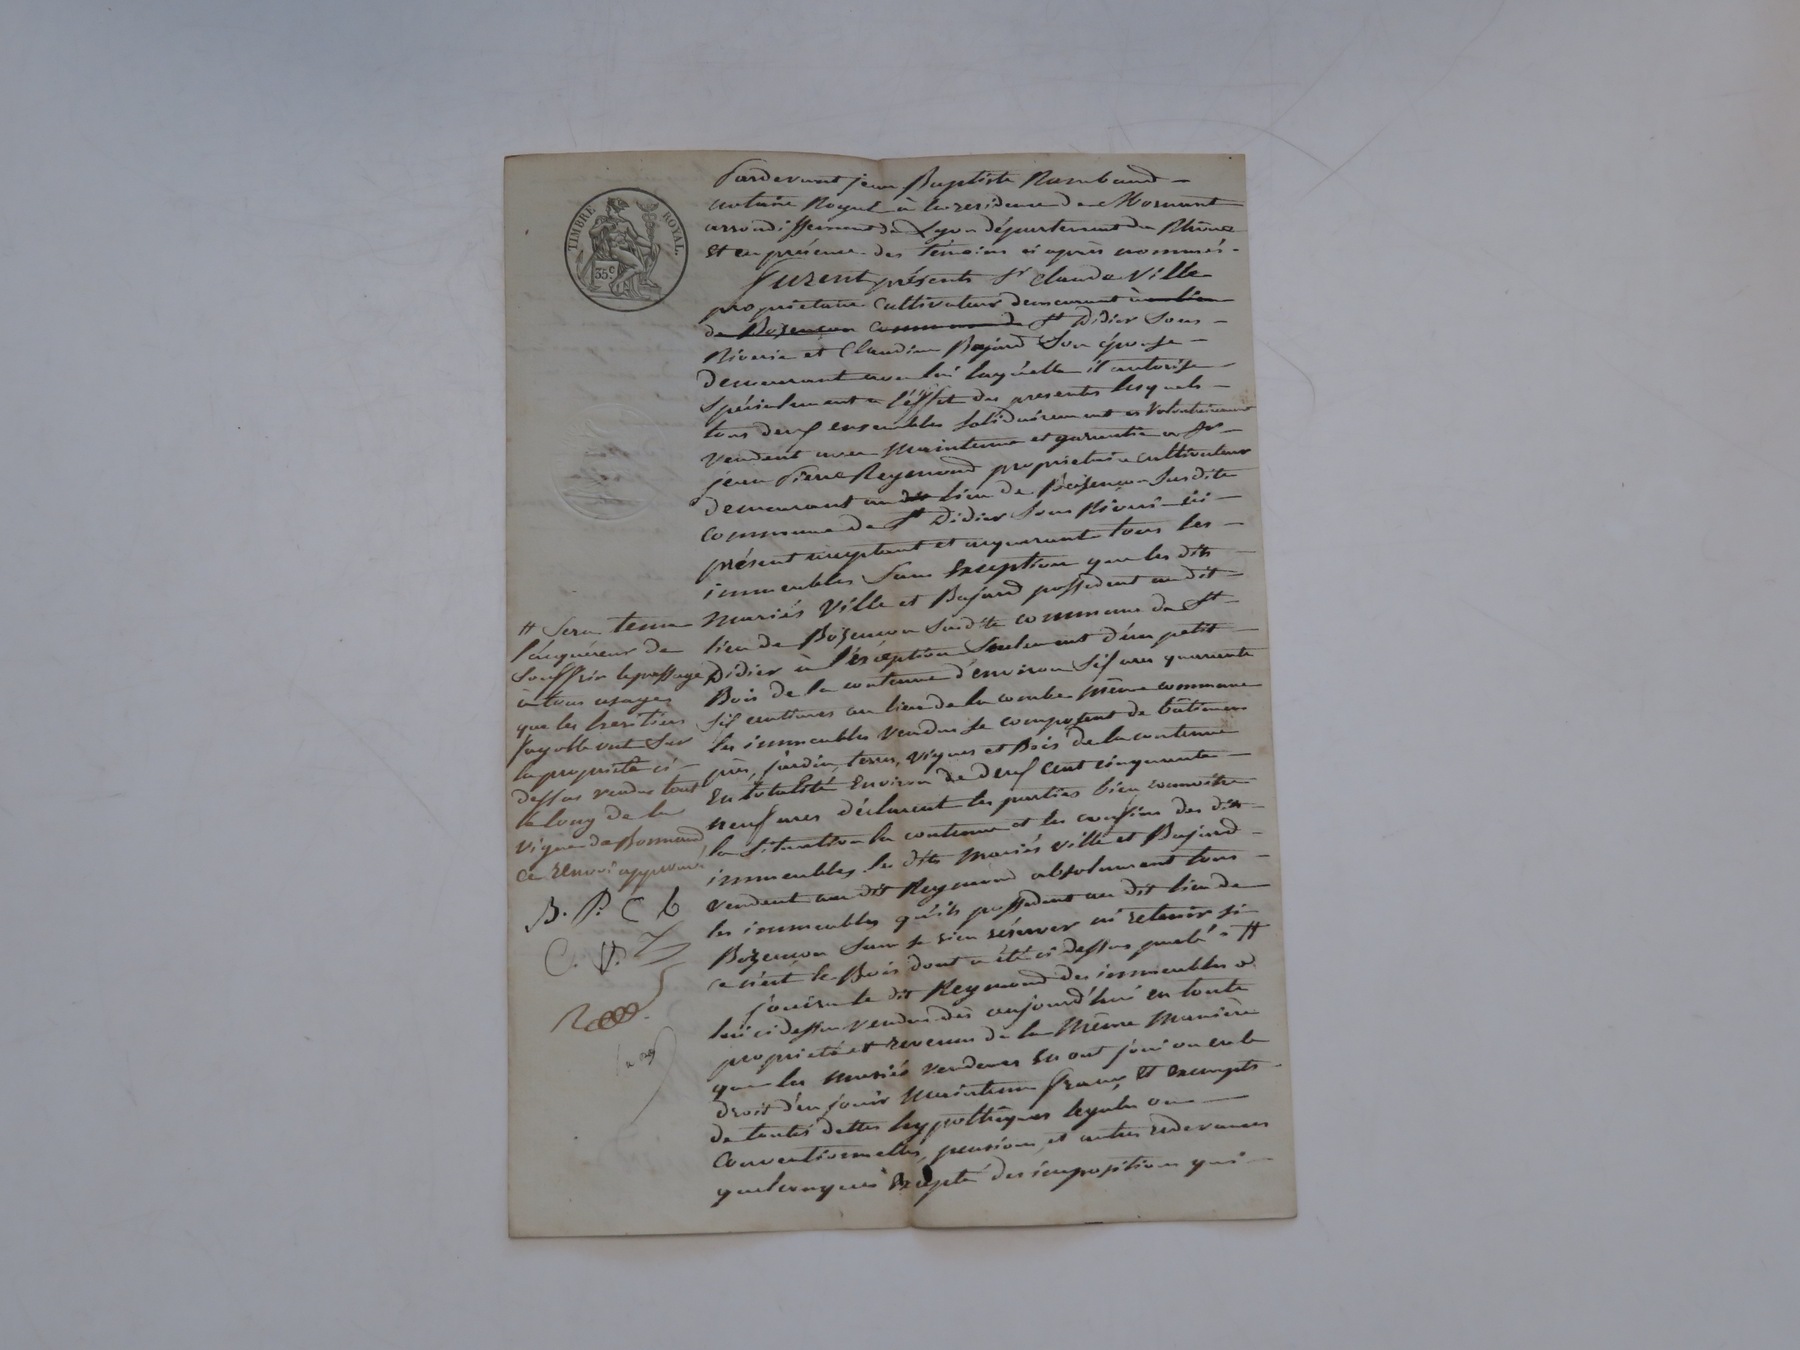 TIMBRE ROYAL
35 c
Pardevant jean Baptiste Rambaud
notaire Royal à la residence de Mornant
arrondissement de Lyon département du Rhône
Et en présence des témoins ci après nommés
Furent présents Sr Claude Ville
proprietaire Cultivateur demeurant à
de Bozançon Commune de St Didier Sous
Riverie et Claudine Bajard Son épouse
demeurant avec lui laquelle il autorise
Spécialement a l'effet des presentes lesquels
tous deux ensembles Solidairement et Volontairement
Vendent avec Maintenue et garantie a Sr
jean Pierre Reymond proprietaire cultivateur
demeurant au dit lieu de Bozançon Susdite
commune de St Didier Sous Riverie ici
présent acceptant et acquerant tous les
immeubles Sans Exception que les dits
Mariés Ville et Bajard possedent au dit
lieu de Bozançon Susdite commune de St
Didier à l'éxception Seulement d'un petit
Bois de la contenue d'environ Six ares quarante
Six centiares au lieu de la combe même commune
les immeubles Vendus Se composent de bâtiments
prés, jardin, terres, vignes et Bois de la contenue
En totalité Environ de deux cent cinquante
neuf ares déclarent les parties bien connoitre
la Situation la contenue et les confins des dits
immeubles les dits Mariés Ville et Bajard
Vendent au dit Reymond absolument tous
les immeubles qu'ils possedent au dit lieu de
Bozançon Sans se rien réserver ni retenir si
ce n'est le Bois dont a été ci dessus parlé #
jouira le dit Reymond des immeubles a
lui ci dessus Vendus dès aujourd'hui en toute
propriété et revenus de la Même Manière
que les mariés Vendeurs En ont joui ou eu le
droit d'en jouir Maintenus francs, Et exempts
de toutes dettes hypothèques legales ou
Conventionnelles, pensions, et autres redevances
quelconques Excepté des impositions qui
# Sera tenu
l'acquéreur de
Souffrir le passage
à tous usages
que les heritiers
Fayolle ont Sur
la proprieté ci
dessus vendue tout
le long de la
Vigne de Bonnand
ce renvoi approuvé
B. P. C b
C. V.